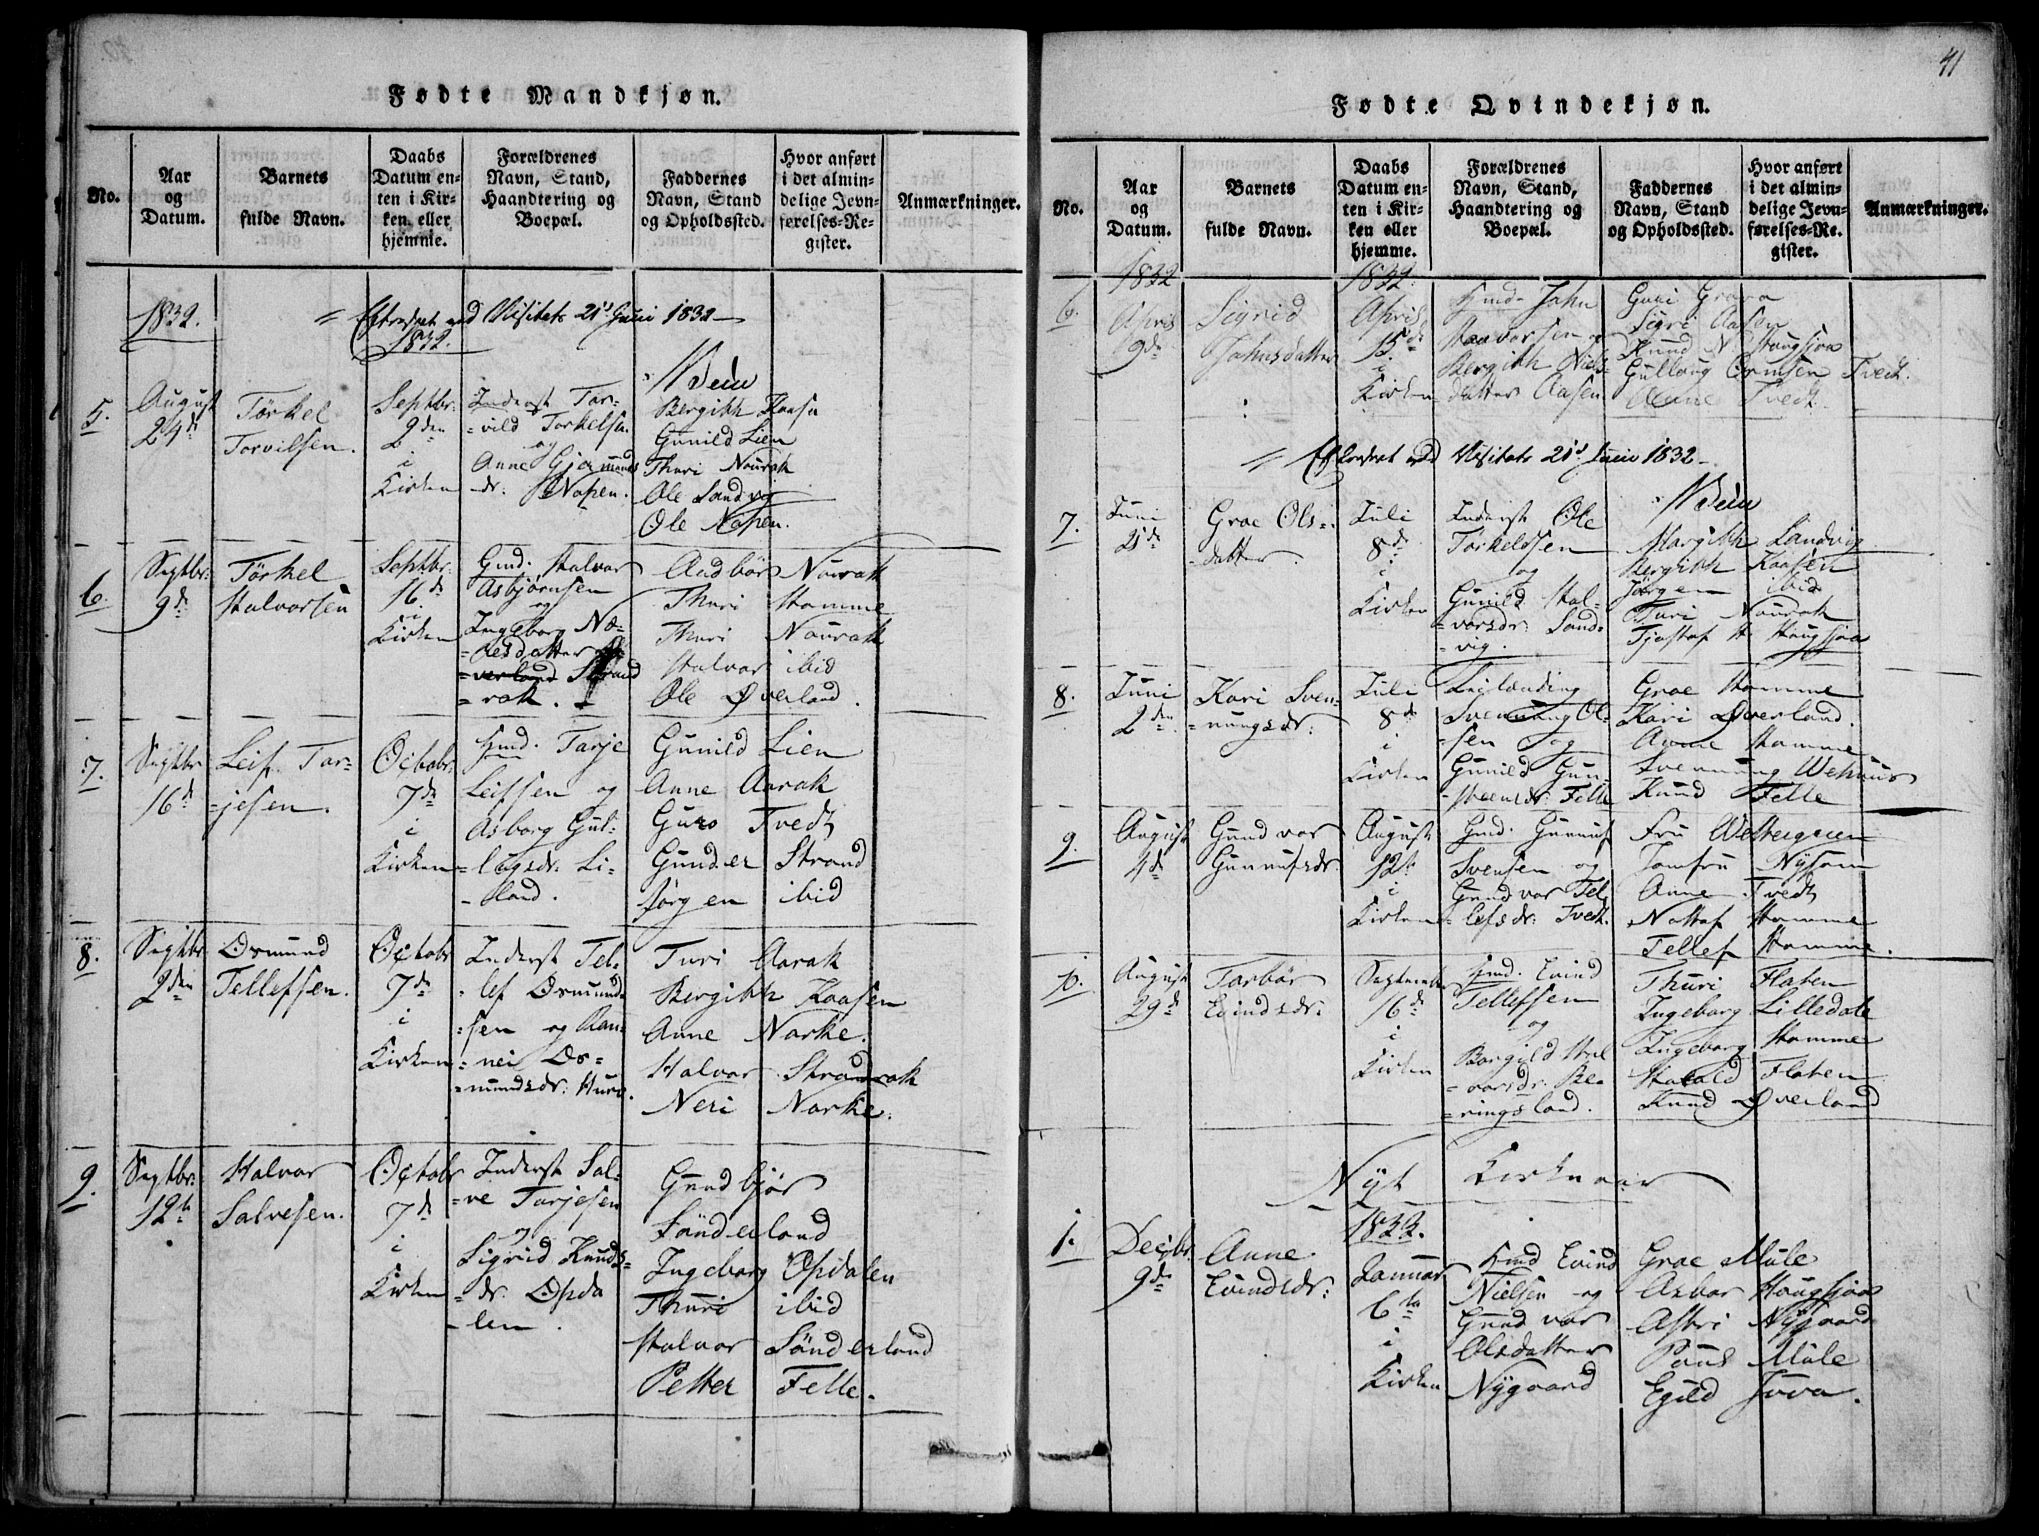 Fødte Mandkjøn.
No.
Aar
og
Datum.
Barnets
fulde Navn.
Daabs
Datum en-
ten i Kir-
ken eller
hjemme.
Forældrenes
Navn, Stand,
Haandtering og
Boepæl.
Faddernes
Navn, Stand
og Opholdssted.
Hvor anført
i det almin-
delige Jevn-
førelses-Re-
gister.
Anmærkninger.
1832.
Efterseet ved Visitats 21d Juni 1832
1832.
5.
August
24de
Törkel
Torvilsen.
Septbr:
2den
i
Kirken
Inderst Tar-
vild Torkelsen
og
Anne
dr:
Bergith Kaasa
Gunild Lien
Thuri Naurak
Ole Landvig
Ole
6.
Septbr:
9de
Törkel
Halvorsen
Septbr:
16de
i
Kirken
Gmd. Halvor
Asbjørnsen
og
Ingeborg Næ-
resdatter
rak.
Audbör Naurak
Thuri Hamme
Thuri Naurak
Halvor ibid
Ole Øverland.
7.
Septbr
16d
Leif Tar-
jesen.
Octobr:
7de
i
Kirken
Gmd. Tarje
Leifsen og
Asborg Gul-
lugsdr: Li-
land.
Gunild Lien
Anne Aarak
Guro Tvedt
Gunder Strand
Jørgen ibid
8.
Septbr
2den
Osmund
Tellefsen.
Octobr
7de
i
Kirken
Inderst Tel-
lef Osmund-
sen og Ran-
nei Os-
mundsdr:
Turi Aarak
Bergith Kaasen
Anne Narke.
Halvor
Neri Narke.
9.
Septbr:
12te
Halvor
Salvesen.
Octobr
7de
i
Kirken
Inderst Sal-
ve Tarjesen
og
Sigrid Knuds-
dr. Opda
len.
Gundbjör
Sönderland
Ingeborg Opdalen
Thuri ibid
Halvor Sönderland
Petter Felle.
41
Fødte Qvindekjøn.
No.
Aar
og
Datum.
Barnets
fulde Navn.
Daabs
Datum en-
ten i Kir-
ken eller
hjemme.
Forældrenes
Navn, Stand,
Haandtering og
Boepæl.
Faddernes
Navn, Stand
og Opholdssted.
Hvor anført
i det almin-
delige Jevn-
førelses-Re-
gister.
Anmærkninger.
1832
1832.
6.
April
9de
Sigrid
Jahnsdatter
April
15de
i
Kirken
Gmd. Jahn
Haavorsen og
Bergith Niels-
datter Aasen
Guri
Sigri Aasen
Knud N. Haugsjaa
Gullaug Ormsen Tvedt.
Anne Tvedt.
Efterseet ved Visitats 21d Juni 1832
7.
Juni
2de
Groe Ols-
datter
Juli
8de
i
Kirken
Inderst Ole
Torkeldsen
og
Gunild Hal-
vorsdr: Land-
vig.
Margith Landvig
Bergith Kaasen
Jörgen ibid
Turi Naurak
Haugsjaa
8.
Juni
2den
Kari Sven-
nungsdr:
Juli
8de
i
Kirken
Leilænding
Svennung Ol-
sen og
Gunild Gun-
steensdr: Felle
Groe Hamme
Kari Øverland.
Anne Hamme
Svennung Wehuus
Knud Felle
9.
August
4de
Gundvor
Gunnufsdr.
August
12te
i
Kirken
Gmd. Gunnuf
Svensen og
Gundvor Tel-
lefsdr: Tvedt.
Fru Westergreen
Jomfru
Anne Tvedt
Hamme
Tellef Hamme.
10.
August
29de
Tarbör
Evindsdr:
September
16de
i
Kirken
Gmd. Evind
Tellefsen
og
Borgild Hal
vorsdr: Be-
ringsland.
Thuri Flaten
Ingeborg Lilledale
Ingeborg Hamme
Harald Flaten
Knud Øverland
Nyt Kirkeaar
1.
Decbr:
9de
Anne
Evindsdr:
1833.
Januar
6te
i
Kirken
Gmd Evind
Nielsen og
Gundvor
Olsdatter
Nygaard
Groe Mule
Asbor Haugsjaa
Astri Nygaard
Poul Mule
Egild